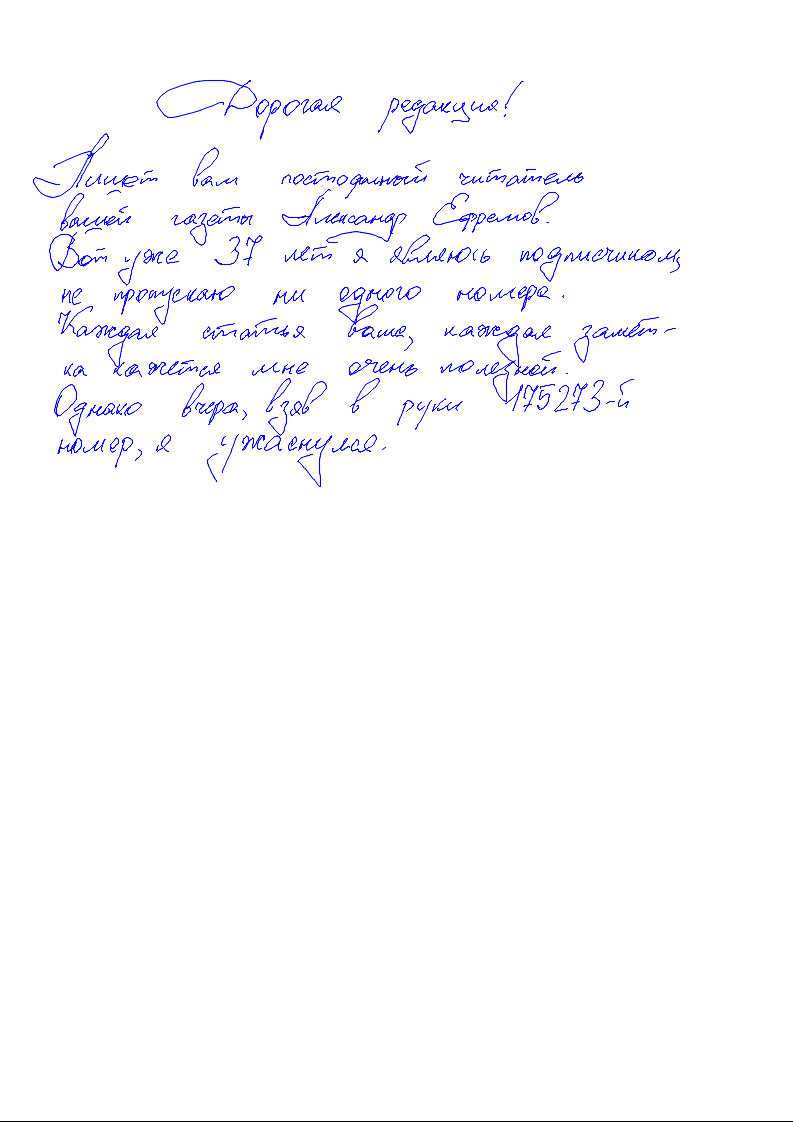 Дорогая редакция!
Пишет вам постоянный читатель
вашей газеты Александр Ефремов.
Вот уже 37 лет я являюсь подписчиком,
не пропускаю ни одного номера.
Каждая статья ваша, каждая замет-
ка кажется мне очень полезной.
Однако вчера, взяв в руки 175273-й
номер, я ужаснулся.